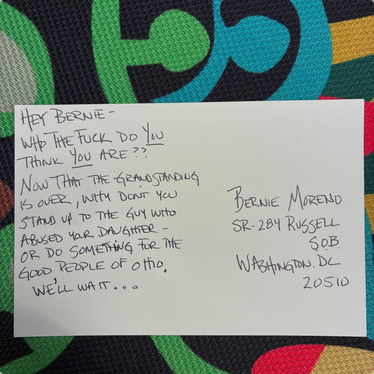 HEY BERNIE-
WHO THE FUCK DO YOU
THINK YOU ARE??
NOW THAT THE GRANDSTANDING
IS OVER, WHY DON'T YOU
STAND UP TO THE GUY WHO
ABUSED YOUR DAUGHTER -
OR DO SOMETHING FOR THE
GOOD PEOPLE OF OHIO.
WE'LL WAIT...
BERNIE MORENO
SR-284 RUSSELL
S.O.B.
WASHINGTON, DC
20510